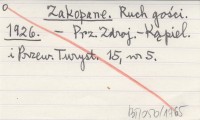 Zakopane. Ruch gości.
1926. – Prz. Zdroj.-Kąpiel.
i Przew. Turyst. 15, nr 5.